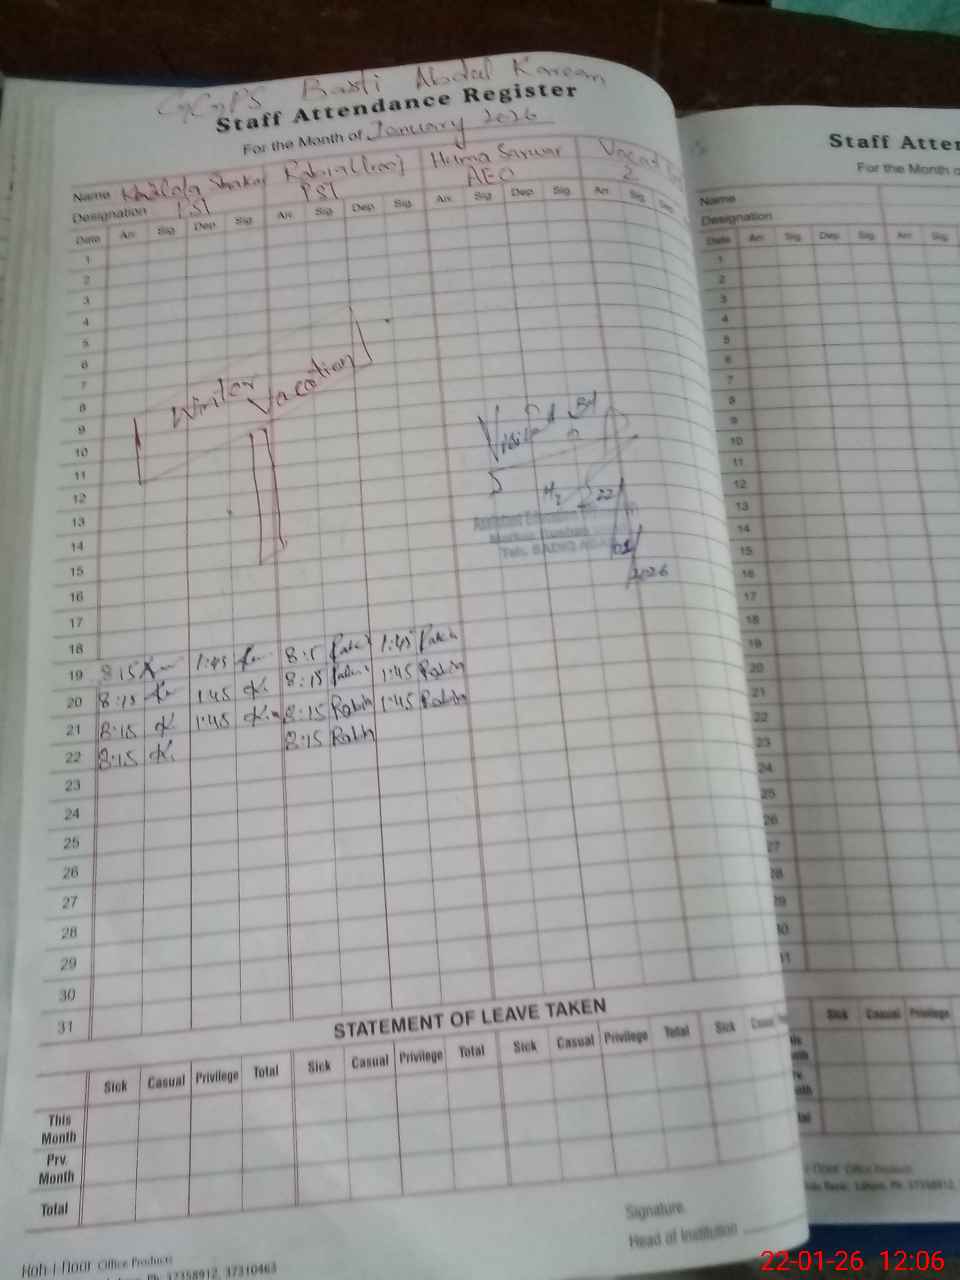 GGPS Basti Abdul Kareem
Staff Attendance Register
For the Month of January 2026
Name Khalida Shakar Huma Sarwar
Designation PST PST AEO 2
Date Arr. Sig Dep Sig Arr. Sig Dep Sig Arr. Sig Dep Sig Arr. Sig Dep
1
2
3
4
5
6
7
8
9
10
11
12
13
14
15
16
17
18
Winter
Vacation
Visited
22
01
2026
19 8:15 1:45 8:15 1:45
20 8:15 K 1:45 K. 8:15 1:45 Rabia
21 8:15 K 1:45 K. 8:15 Rabia 1:45 Rabia
22 8:15 K. 8:15 Rabia
23
24
25
26
27
28
29
30
31
STATEMENT OF LEAVE TAKEN
Sick Casual Privilege Total Sick Casual Privilege Total Sick Casual Privilege Total Sick Casual
This
Month
Prv.
Month
Total
Signature
Head of Institution
Office Products
Ph: 37358912, 37310463
Staff Atten
For the Month o
Name
Designation
Date Arr. Sig Dep Sig Arr. Sig
1
2
3
4
5
6
7
8
9
10
11
12
13
14
15
16
17
18
19
20
21
22
23
24
25
26
27
28
29
30
31
Sick Casual Privilege
Office Products
22-01-26 12:06